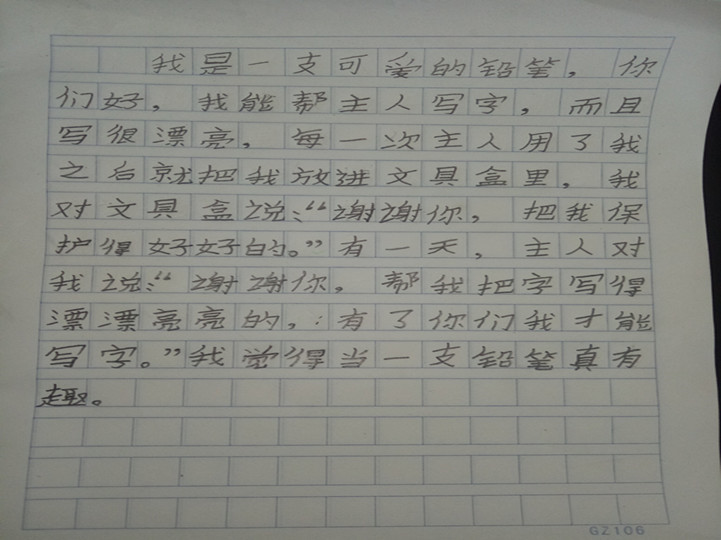 我是一支可爱的铅笔，你
们好，我能帮主人写字，而且
写很漂亮，每一次主人用了我
之后就把我放进文具盒里，我
对文具盒说：“谢谢你，把我保
护得好好好的。”有一天，主人对
我说：“谢谢你，帮我把字写得
漂漂亮亮的，：有了你们我才能
写字。”我觉得当一支铅笔真有
趣。
GZ106